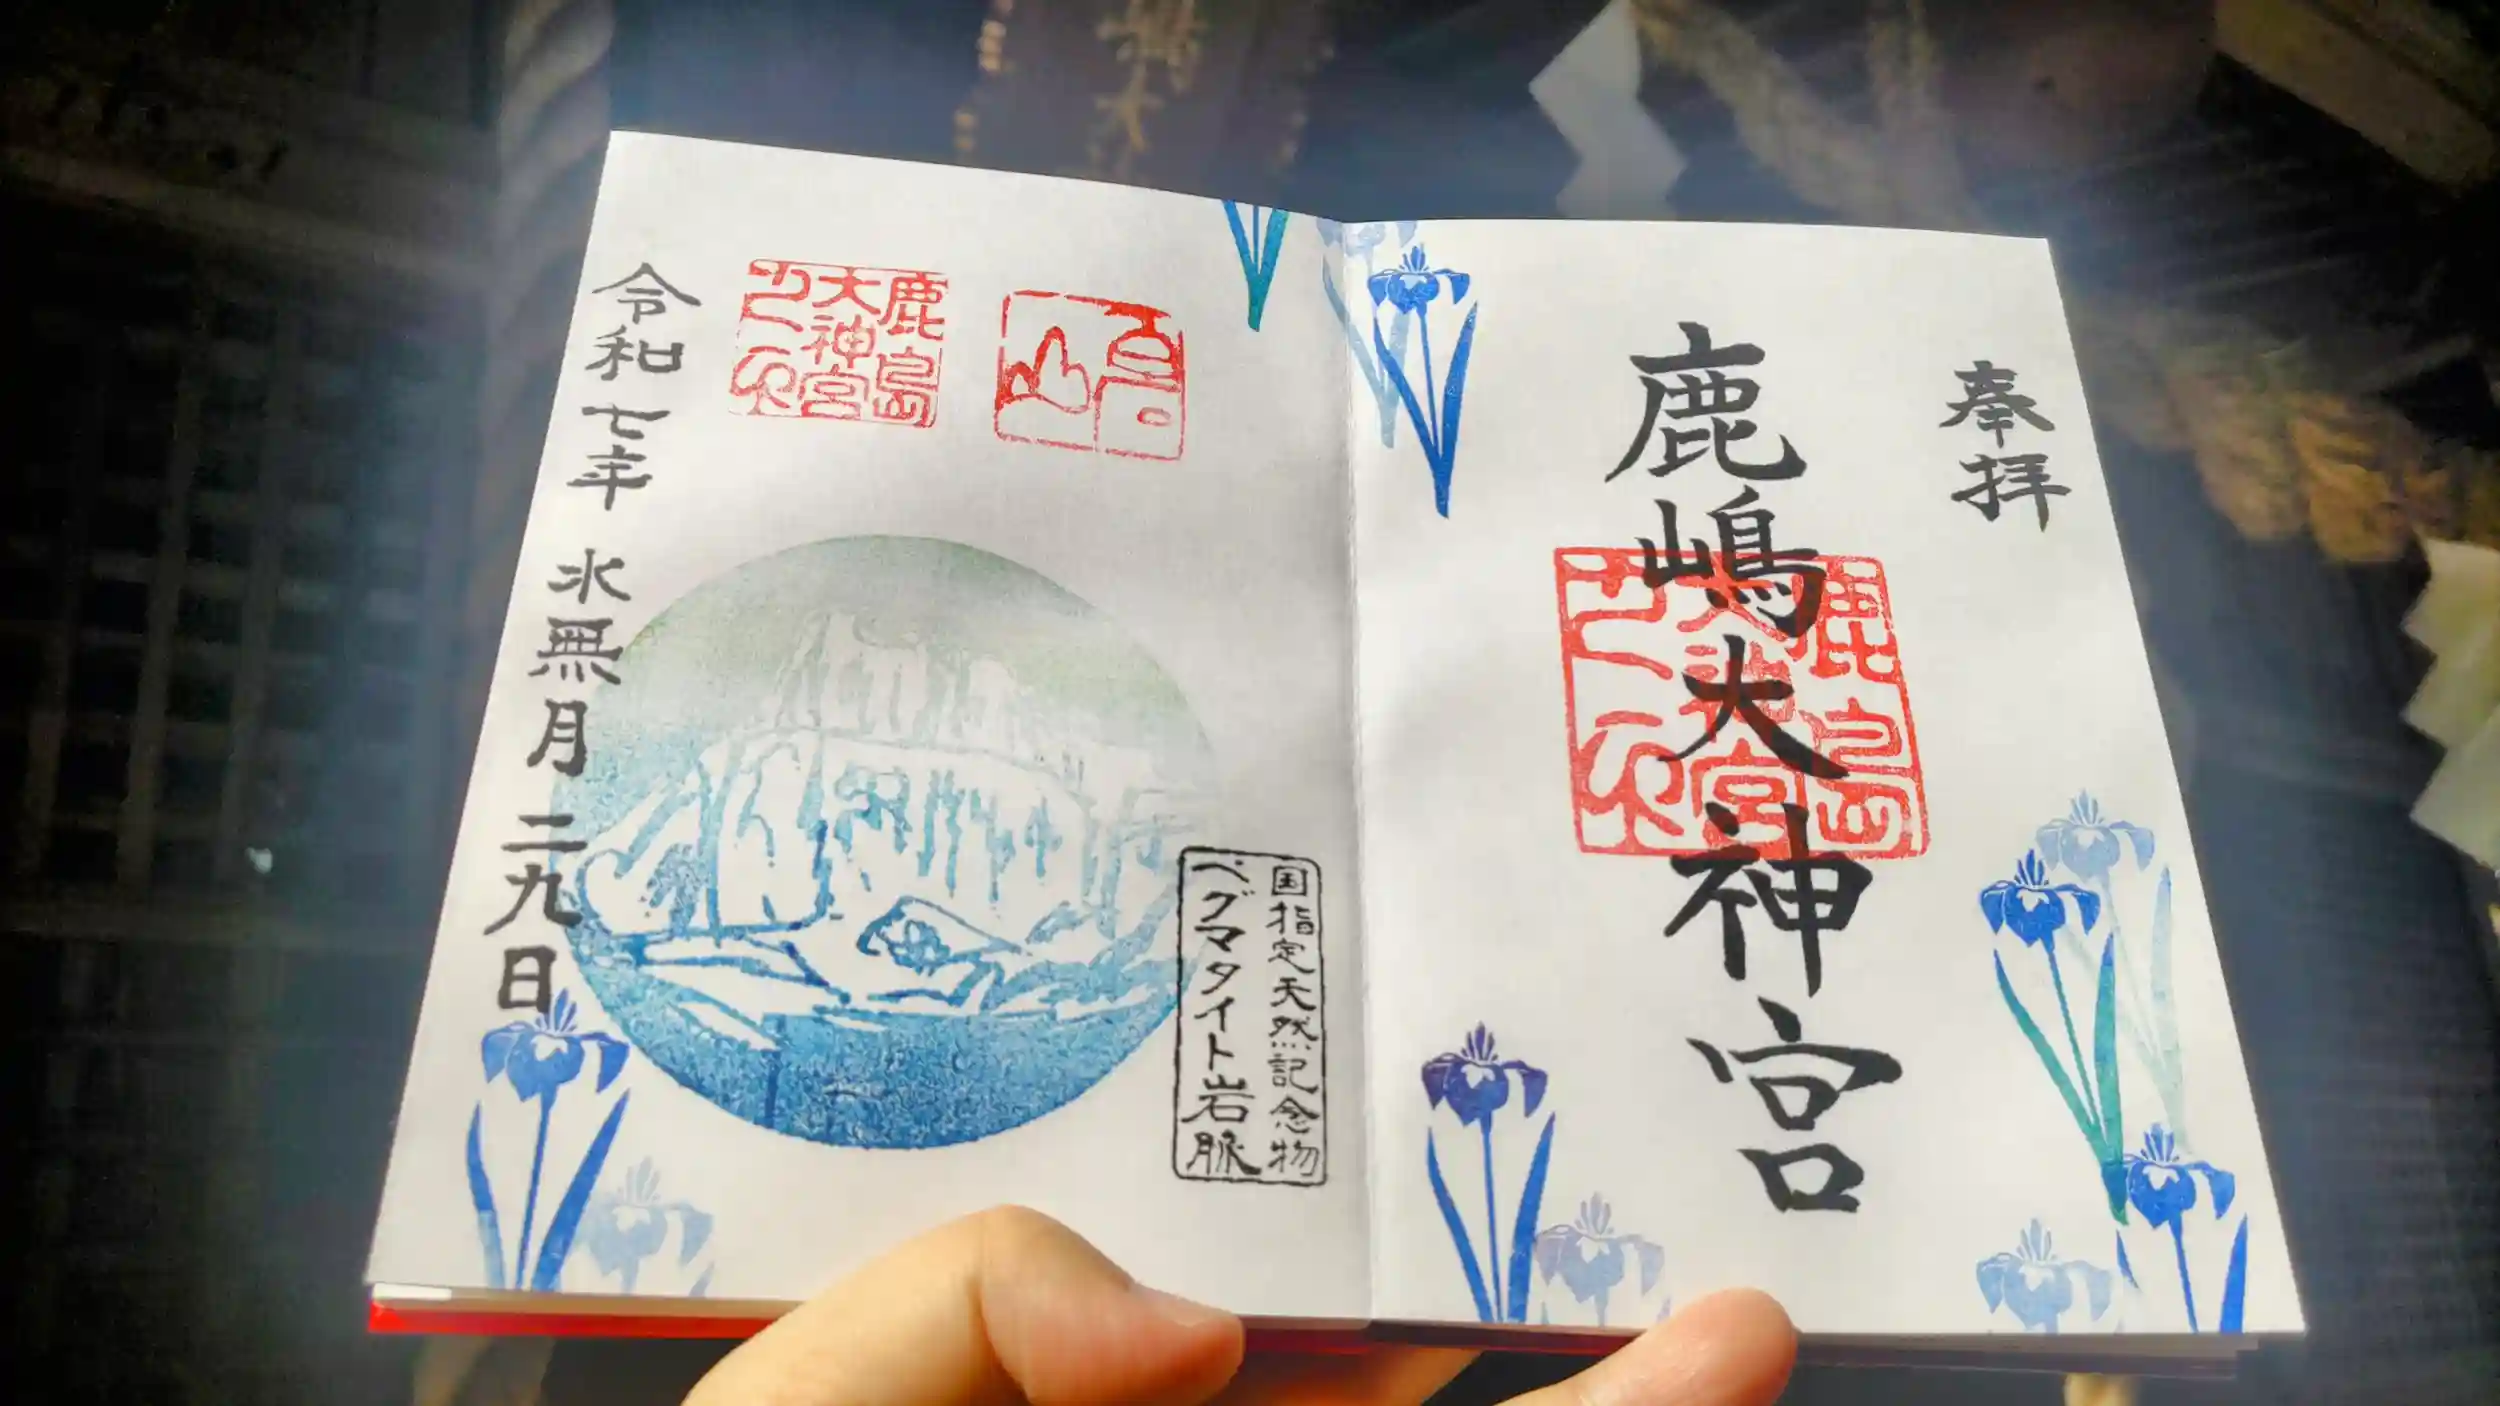 奉拝
鹿嶋大神宮
鹿島
大神宮
鹿島
大神宮
国指定天然記念物
ペグマタイト岩脈
令和七年水無月二九日